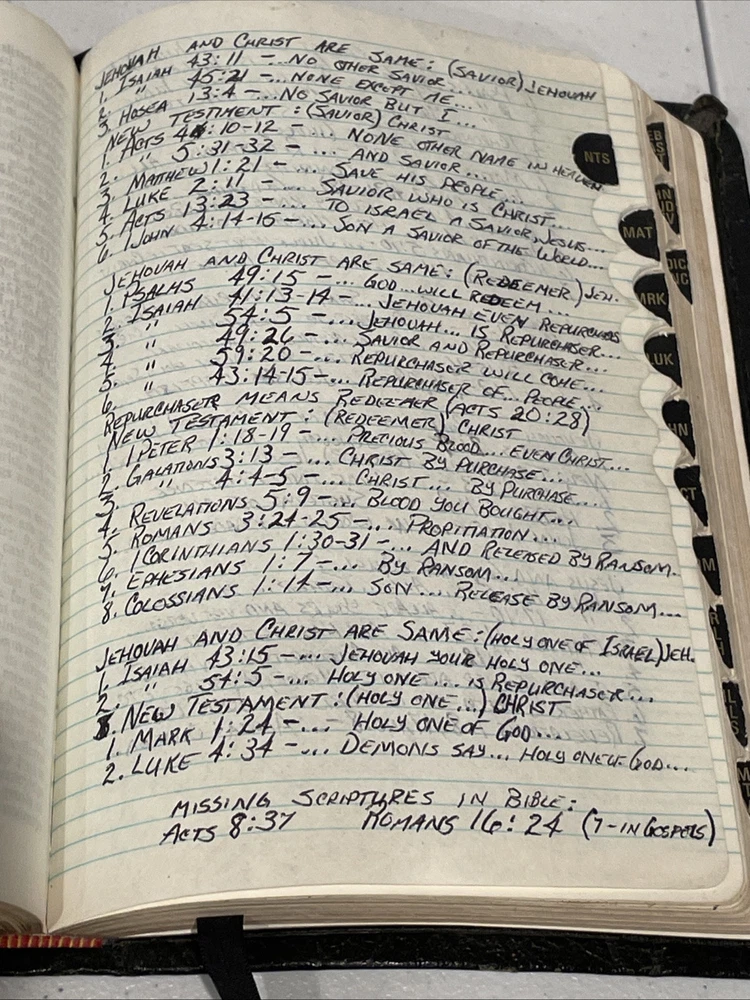 JEHOVAH AND CHRIST ARE SAME: (SAVIOR) JEHOVAH
1. ISAIAH 43:11 -... NO OTHER SAVIOR...
2. " 45:21 -... NONE EXCEPT ME...
3. HOSEA 13:4 -... NO SAVIOR BUT I...
NEW TESTIMENT: (SAVIOR) CHRIST
1. ACTS 4:10-12 -... NONE OTHER NAME IN HEAVEN
2. " 5:31-32 -... AND SAVIOR...
3. MATHEW 1:21 -... SAVE HIS PEOPLE...
4. LUKE 2:11 -... SAVIOR WHO IS CHRIST...
5. ACTS 13:23 -... TO ISRAEL A SAVIOR, JESUS...
6. 1 JOHN 4:14-16 -... SON A SAVIOR OF THE WORLD...
JEHOVAH AND CHRIST ARE SAME: (REDEEMER) JEH.
1. PSALMS 49:15 -... GOD... WILL REDEEM...
2. ISAIAH 41:13-14 -... JEHOVAH EVEN REPURCHASES
3. " 54:5 -... JEHOVAH... IS REPURCHASER...
4. " 49:26 -... SAVIOR AND REPURCHASER...
5. " 59:20 -... REPURCHASER WILL COME...
6. " 43:14-15 -... REPURCHASER OF... PEOPLE...
REPURCHASER MEANS REDEEMER (ACTS 20:28)
NEW TESTAMENT: (REDEEMER) CHRIST
1. 1 PETER 1:18-19 -... PRECIOUS BLOOD... EVEN CHRIST...
2. GALATIONS 3:13 -... CHRIST BY PURCHASE...
3. " 4:4-5 -... CHRIST... BY PURCHASE...
4. REVELATIONS 5:9 -... BLOOD YOU BOUGHT...
5. ROMANS 3:24-25 -... PROPITIATION...
6. 1 CORINTHIANS 1:30-31 -... AND RELEASED BY RANSOM.
7. EPHESIANS 1:7 -... BY RANSOM...
8. COLOSSIANS 1:14 -... SON... RELEASE BY RANSOM...
JEHOVAH AND CHRIST ARE SAME: (HOLY ONE OF ISRAEL) JEH.
1. ISAIAH 43:15 -... JEHOVAH YOUR HOLY ONE...
2. " 54:5 -... HOLY ONE... IS REPURCHASER...
NEW TESTAMENT: (HOLY ONE...) CHRIST
1. MARK 1:24 -... HOLY ONE OF GOD...
2. LUKE 4:34 -... DEMONS SAY... HOLY ONE OF GOD...
MISSING SCRIPTURES IN BIBLE:
ACTS 8:37 ROMANS 16:24 (7-IN GOSPELS)
NTS
MAT
MRK
LUK